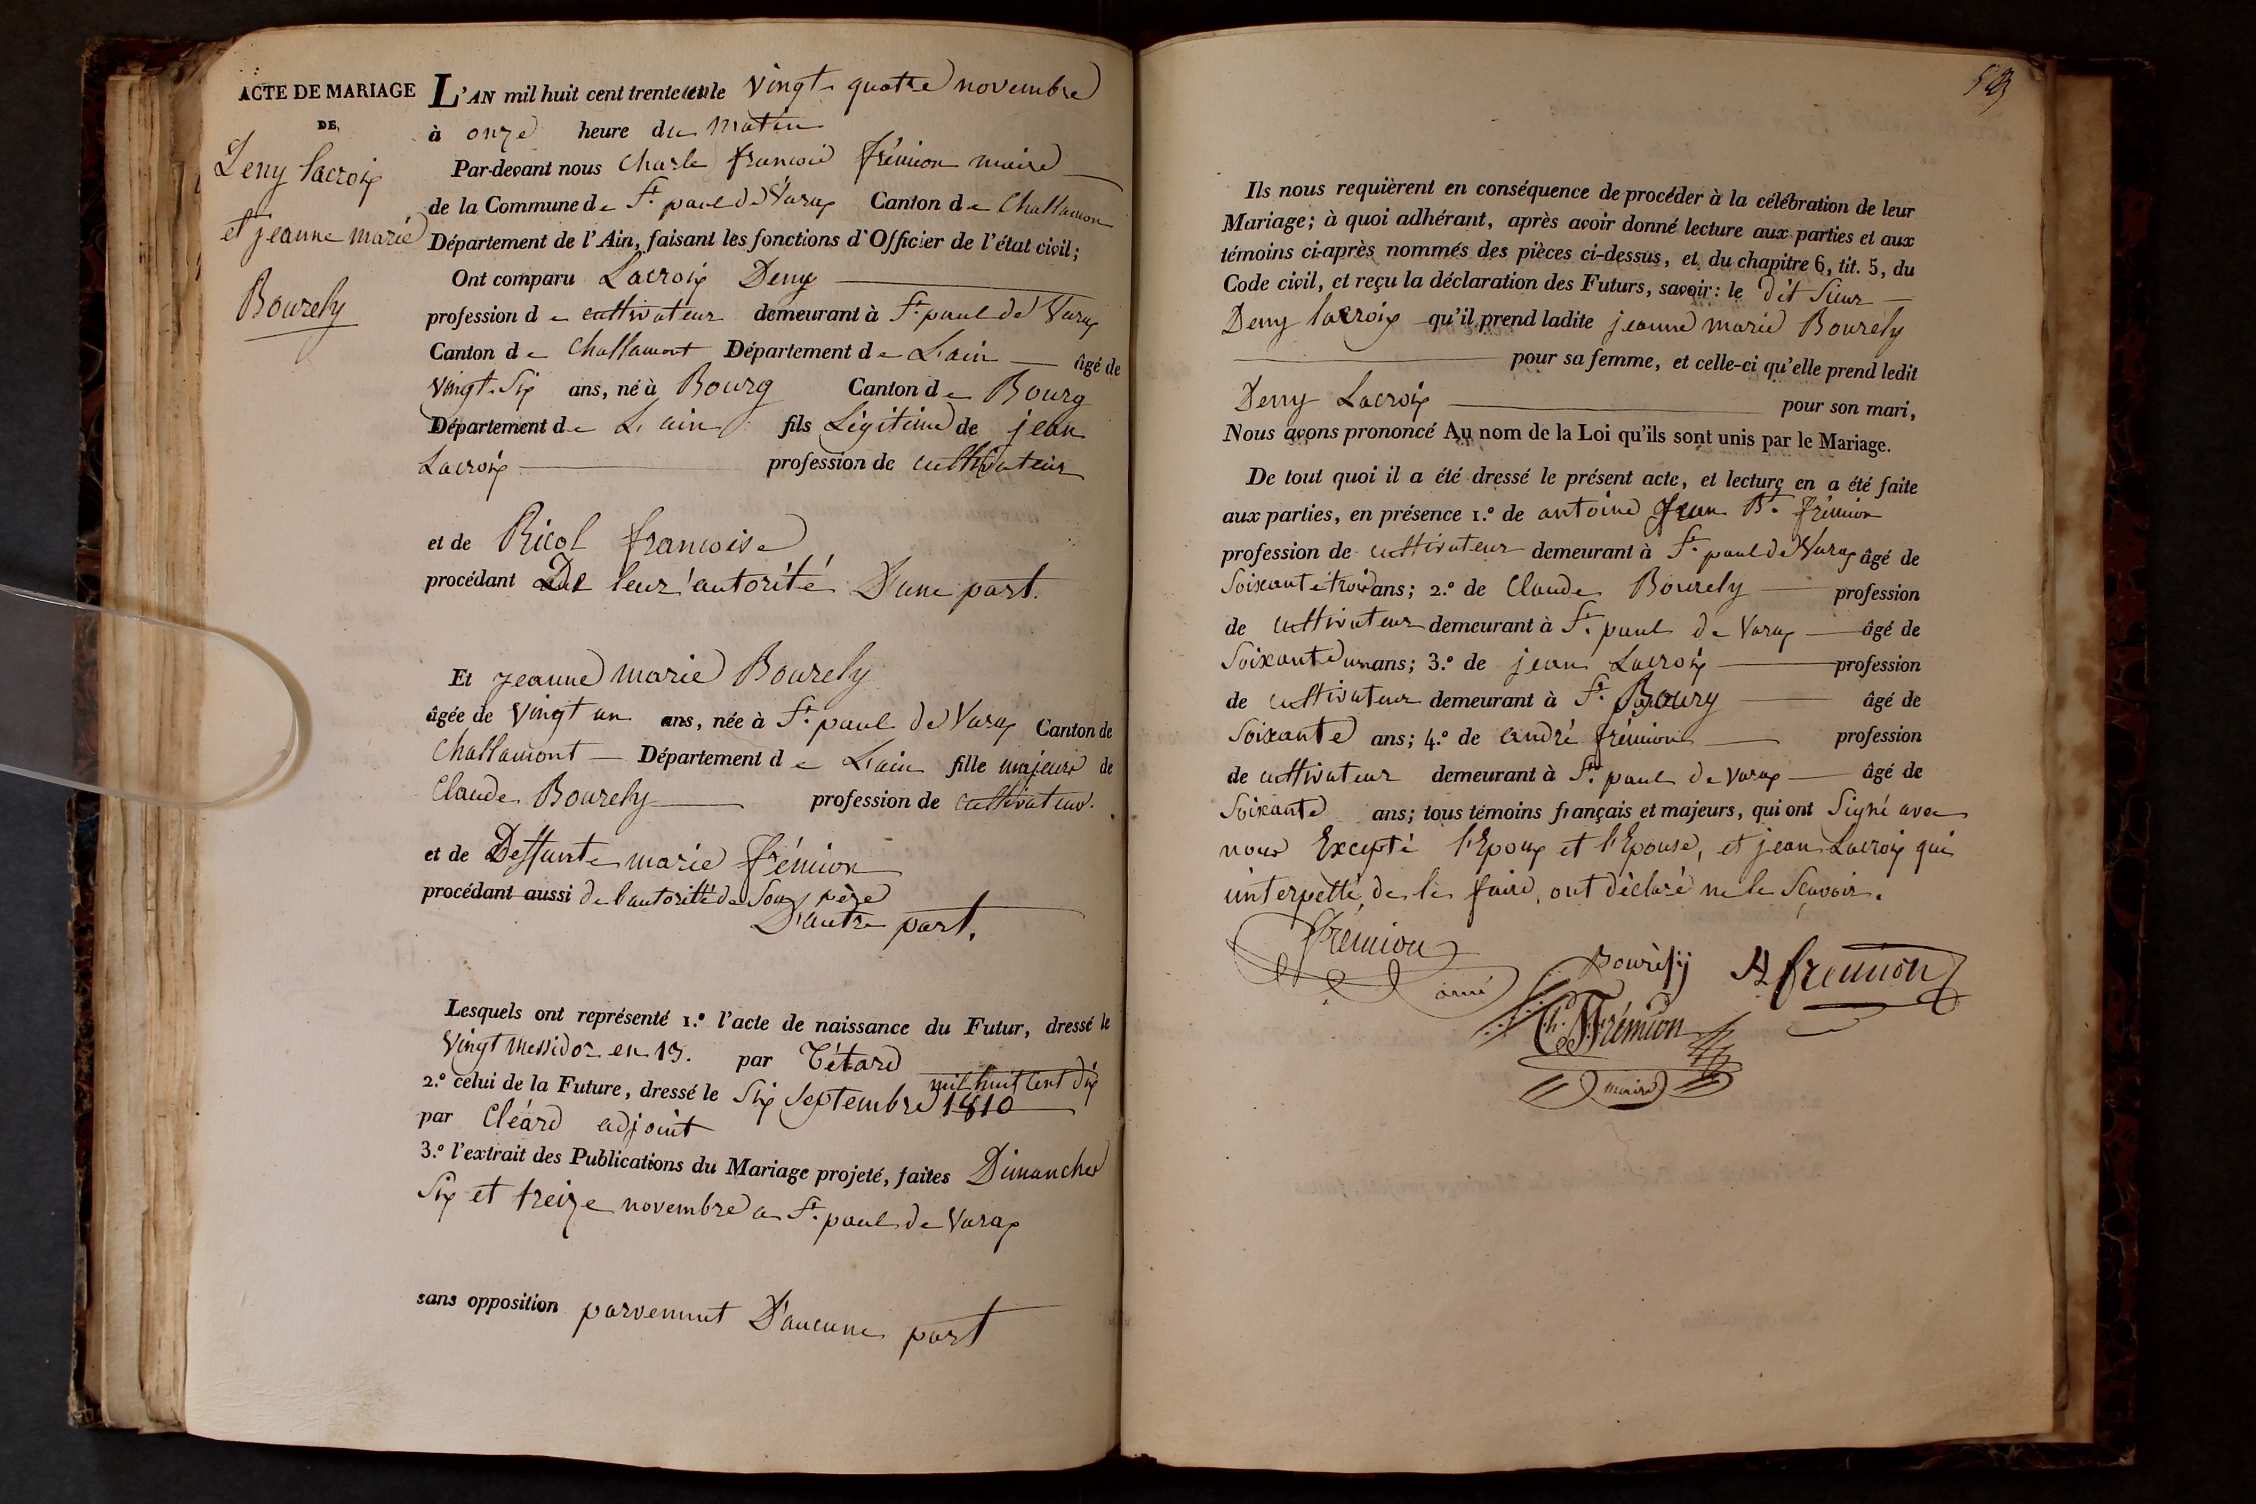 ACTE DE MARIAGE
DE
Deny lacroix
et jeanne marie
Bourely
L'AN mil huit cent trente et un le vingt quatre novembre
à onze heure du matin
Par-devant nous Charle francois frémion maire
de la Commune de St. paul de Varax Canton de Challamon
Département de l'Ain, faisant les fonctions d'Officier de l'état civil;
Ont comparu Lacroix Deny
profession de cultivateur demeurant à St. paul de Varax
Canton de Challamont Département de L'ain âgé de
vingt-Six ans, né à Bourg Canton de Bourg
Département de L'ain fils Légitime de jean
Lacroix profession de cultivateur
et de Ricol francoise
procédant De leur autorité D'une part.
Et jeanne marie Bourely
âgée de vingt un ans, née à St. paul de Varax Canton de
Challamont Département de L'ain fille majeure de
Claude Bourely profession de cultivateur.
et de Deffunte marie frémion
procédant aussi de l'autorité de Son père
D'autre part.
Lesquels ont représenté 1.º l'acte de naissance du Futur, dressé le
Vingt Messidor en 13. par Tétard
2.º celui de la Future, dressé le Six Septembre 1810 mil huit cent dix
par Cléard adjoint
3.º l'extrait des Publications du Mariage projeté, faites Dimanches
Six et treize novembre a St. paul de Varax
sans opposition parvenunt D'aucune part
Ils nous requièrent en conséquence de procéder à la célébration de leur
Mariage; à quoi adhérant, après avoir donné lecture aux parties et aux
témoins ci-après nommés des pièces ci-dessus, et du chapitre 6, tit. 5, du
Code civil, et reçu la déclaration des Futurs, savoir: le dit Sieur
Deny lacroix qu'il prend ladite jeanne marie Bourely
pour sa femme, et celle-ci qu'elle prend ledit
Deny Lacroix pour son mari,
Nous avons prononcé Au nom de la Loi qu'ils sont unis par le Mariage.
De tout quoi il a été dressé le présent acte, et lecture en a été faite
aux parties, en présence 1.º de antoine Jean Bt. frémion
profession de cultivateur demeurant à St. paul de Varax âgé de
Soixante trois ans; 2.º de Claude Bourely profession
de cultivateur demeurant à St. paul de Varax âgé de
Soixante un ans; 3.º de jean Lacroix profession
de cultivateur demeurant à Bourg âgé de
Soixante ans; 4.º de andré frémion profession
de cultivateur demeurant à St. paul de Varax âgé de
Soixante ans; tous témoins français et majeurs, qui ont Signé avec
nous Excepté l'Epoux et l'Epouse, et jean Lacroix qui
interpellé de le faire, ont déclaré ne le Scavoir.
frémion
Bourely A fremion
Ch. Frémion
maire